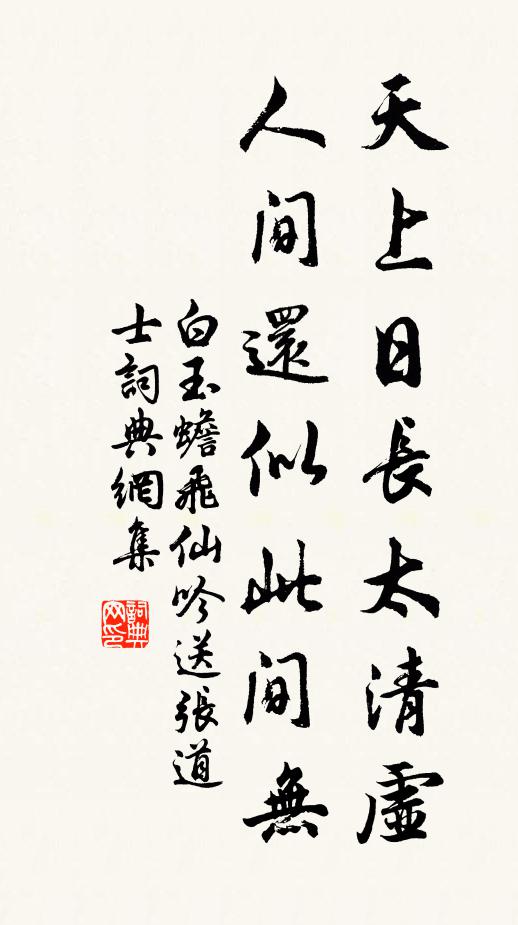 天上日長太清虛
人間還似此間無
白玉蟾飛仙吟送張道
士詞典網集
詞典
网印